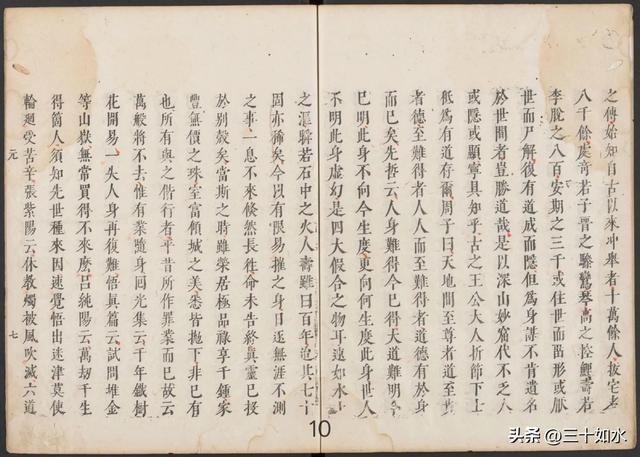 之傳始知自古以來冲舉者十萬餘人拔宅者
八千餘處奇若子晉之驂鸞琴高之控鯉壽若
李脫之八百安期之三千或住世而留形或厭
世而尸解復有道成而隱但爲身謀不肯遺名
於世間者豈勝道哉是以深山妙窟代不乏人
或隱或顯寧具知乎古之王公大人折節下士
低爲有道存爾周子曰天地間至尊者道至貴
者德至難得者人人而至難得者道德有於身
而已矣先哲云人身難得今已得大道難明今
已明此身不向今生度更向何生度此身世人
不明此身虛幻是四大假合之物耳迅如水上
之漚瞬若石中之火人壽雖曰百年迨其七十
固亦稀矣今以有限易摧之身日逐無涯不測
之事一息不來倐然長徃命未告終眞靈已投
於別殼矣當斯之時雖榮居極品祿享千鍾家
豐無價之珠室富傾城之美悉皆拋下非已有
也所有與之偕行者平昔所作罪業而已故云
萬般將不去惟有業隨身回光集云千年鐵樹
花開易一失人身再復難悟眞篇云試問堆金
等山嶽無常買得不來麽呂純陽云萬刧千生
得箇人須知先世種來因速覺悟出迷津莫使
輪廻受苦辛張紫陽云休教燭被風吹滅六道
元
七
10
头条 @三十如水